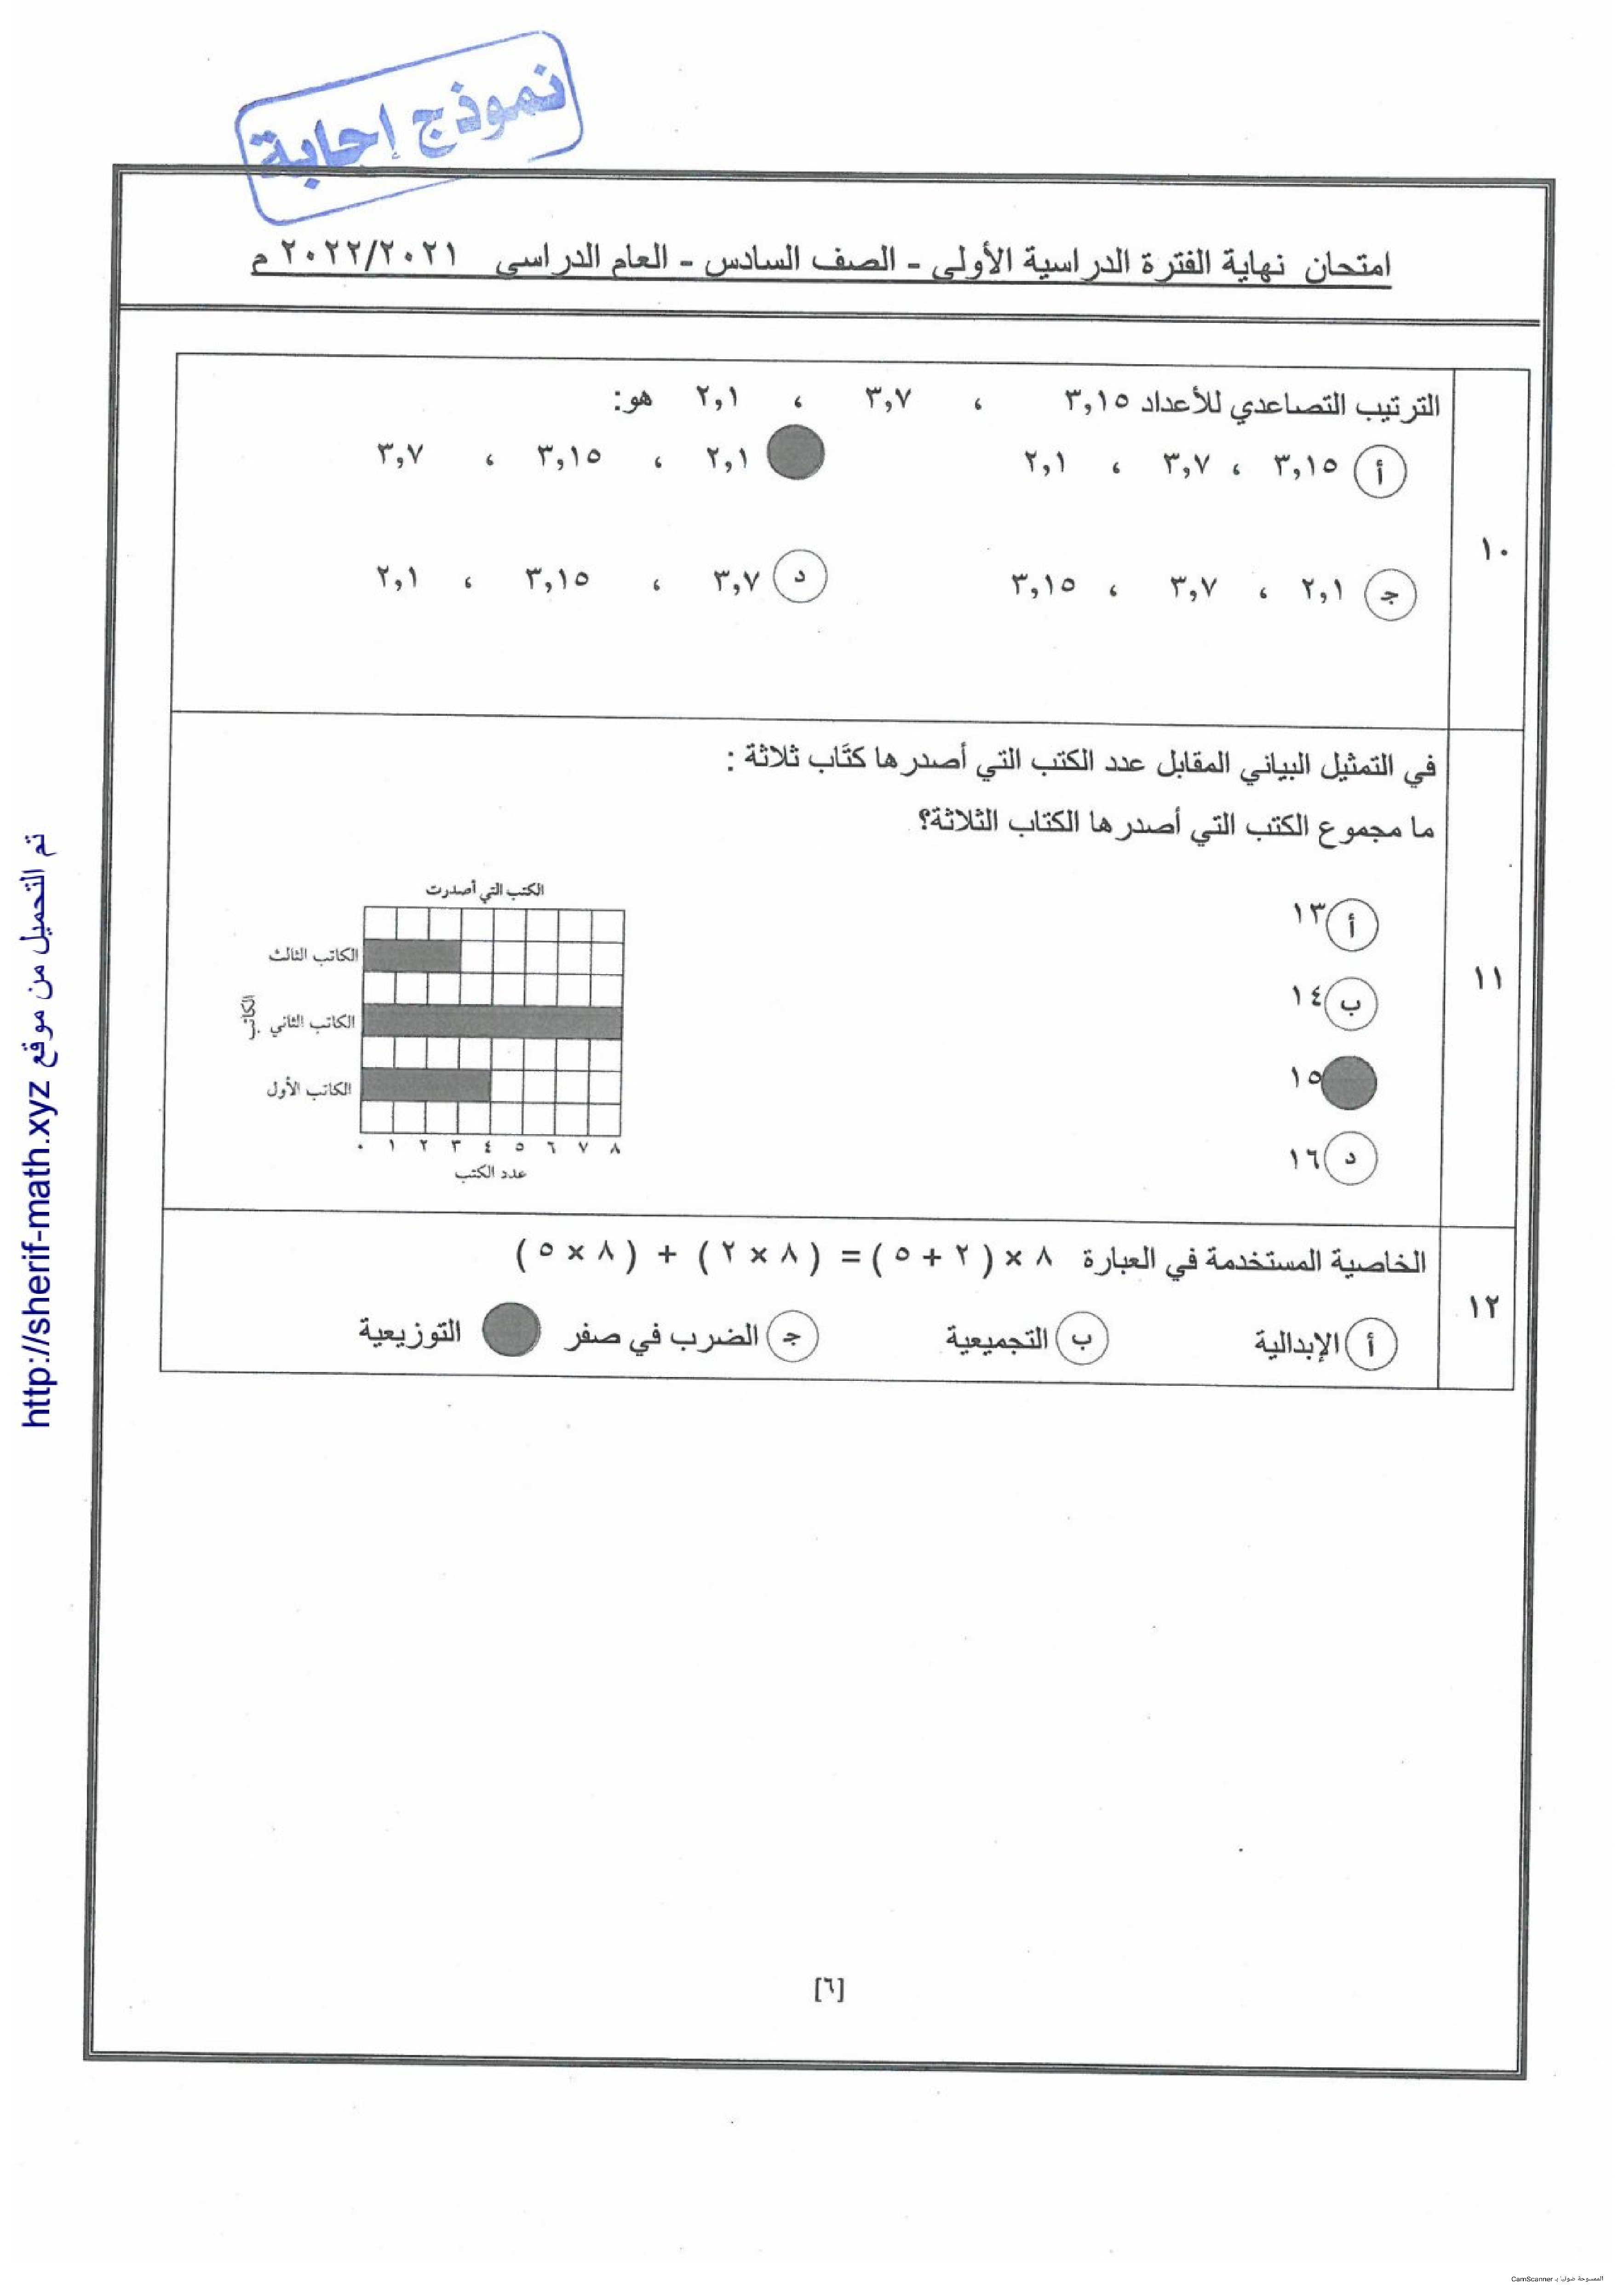 نموذج إجابة
امتحان نهاية الفترة الدراسية الأولى - الصف السادس - العام الدراسي ٢٠٢٢/٢٠٢١ م
١٠
الترتيب التصاعدي للأعداد ٣,١٥ ، ٣,٧ ، ٢,١ هو:
أ ٣,١٥ ، ٣,٧ ، ٢,١
٢,١ ، ٣,١٥ ، ٣,٧
ج ٢,١ ، ٣,٧ ، ٣,١٥
د ٣,٧ ، ٣,١٥ ، ٢,١
١١
في التمثيل البياني المقابل عدد الكتب التي أصدرها كتَّاب ثلاثة :
ما مجموع الكتب التي أصدرها الكتاب الثلاثة؟
أ ١٣
ب ١٤
١٥
د ١٦
الكتب التي أصدرت
الكاتب الثالث
الكاتب الثاني
الكاتب الأول
الكاتب
٠ ١ ٢ ٣ ٤ ٥ ٦ ٧ ٨
عدد الكتب
١٢
الخاصية المستخدمة في العبارة ٨ × ( ٢ + ٥ ) = ( ٨ × ٢ ) + ( ٨ × ٥ )
أ الإبدالية ب التجميعية ج الضرب في صفر التوزيعية
[٦]
تم التحميل من موقع http://sherif-math.xyz
الممسوحة ضوئيا بـ CamScanner